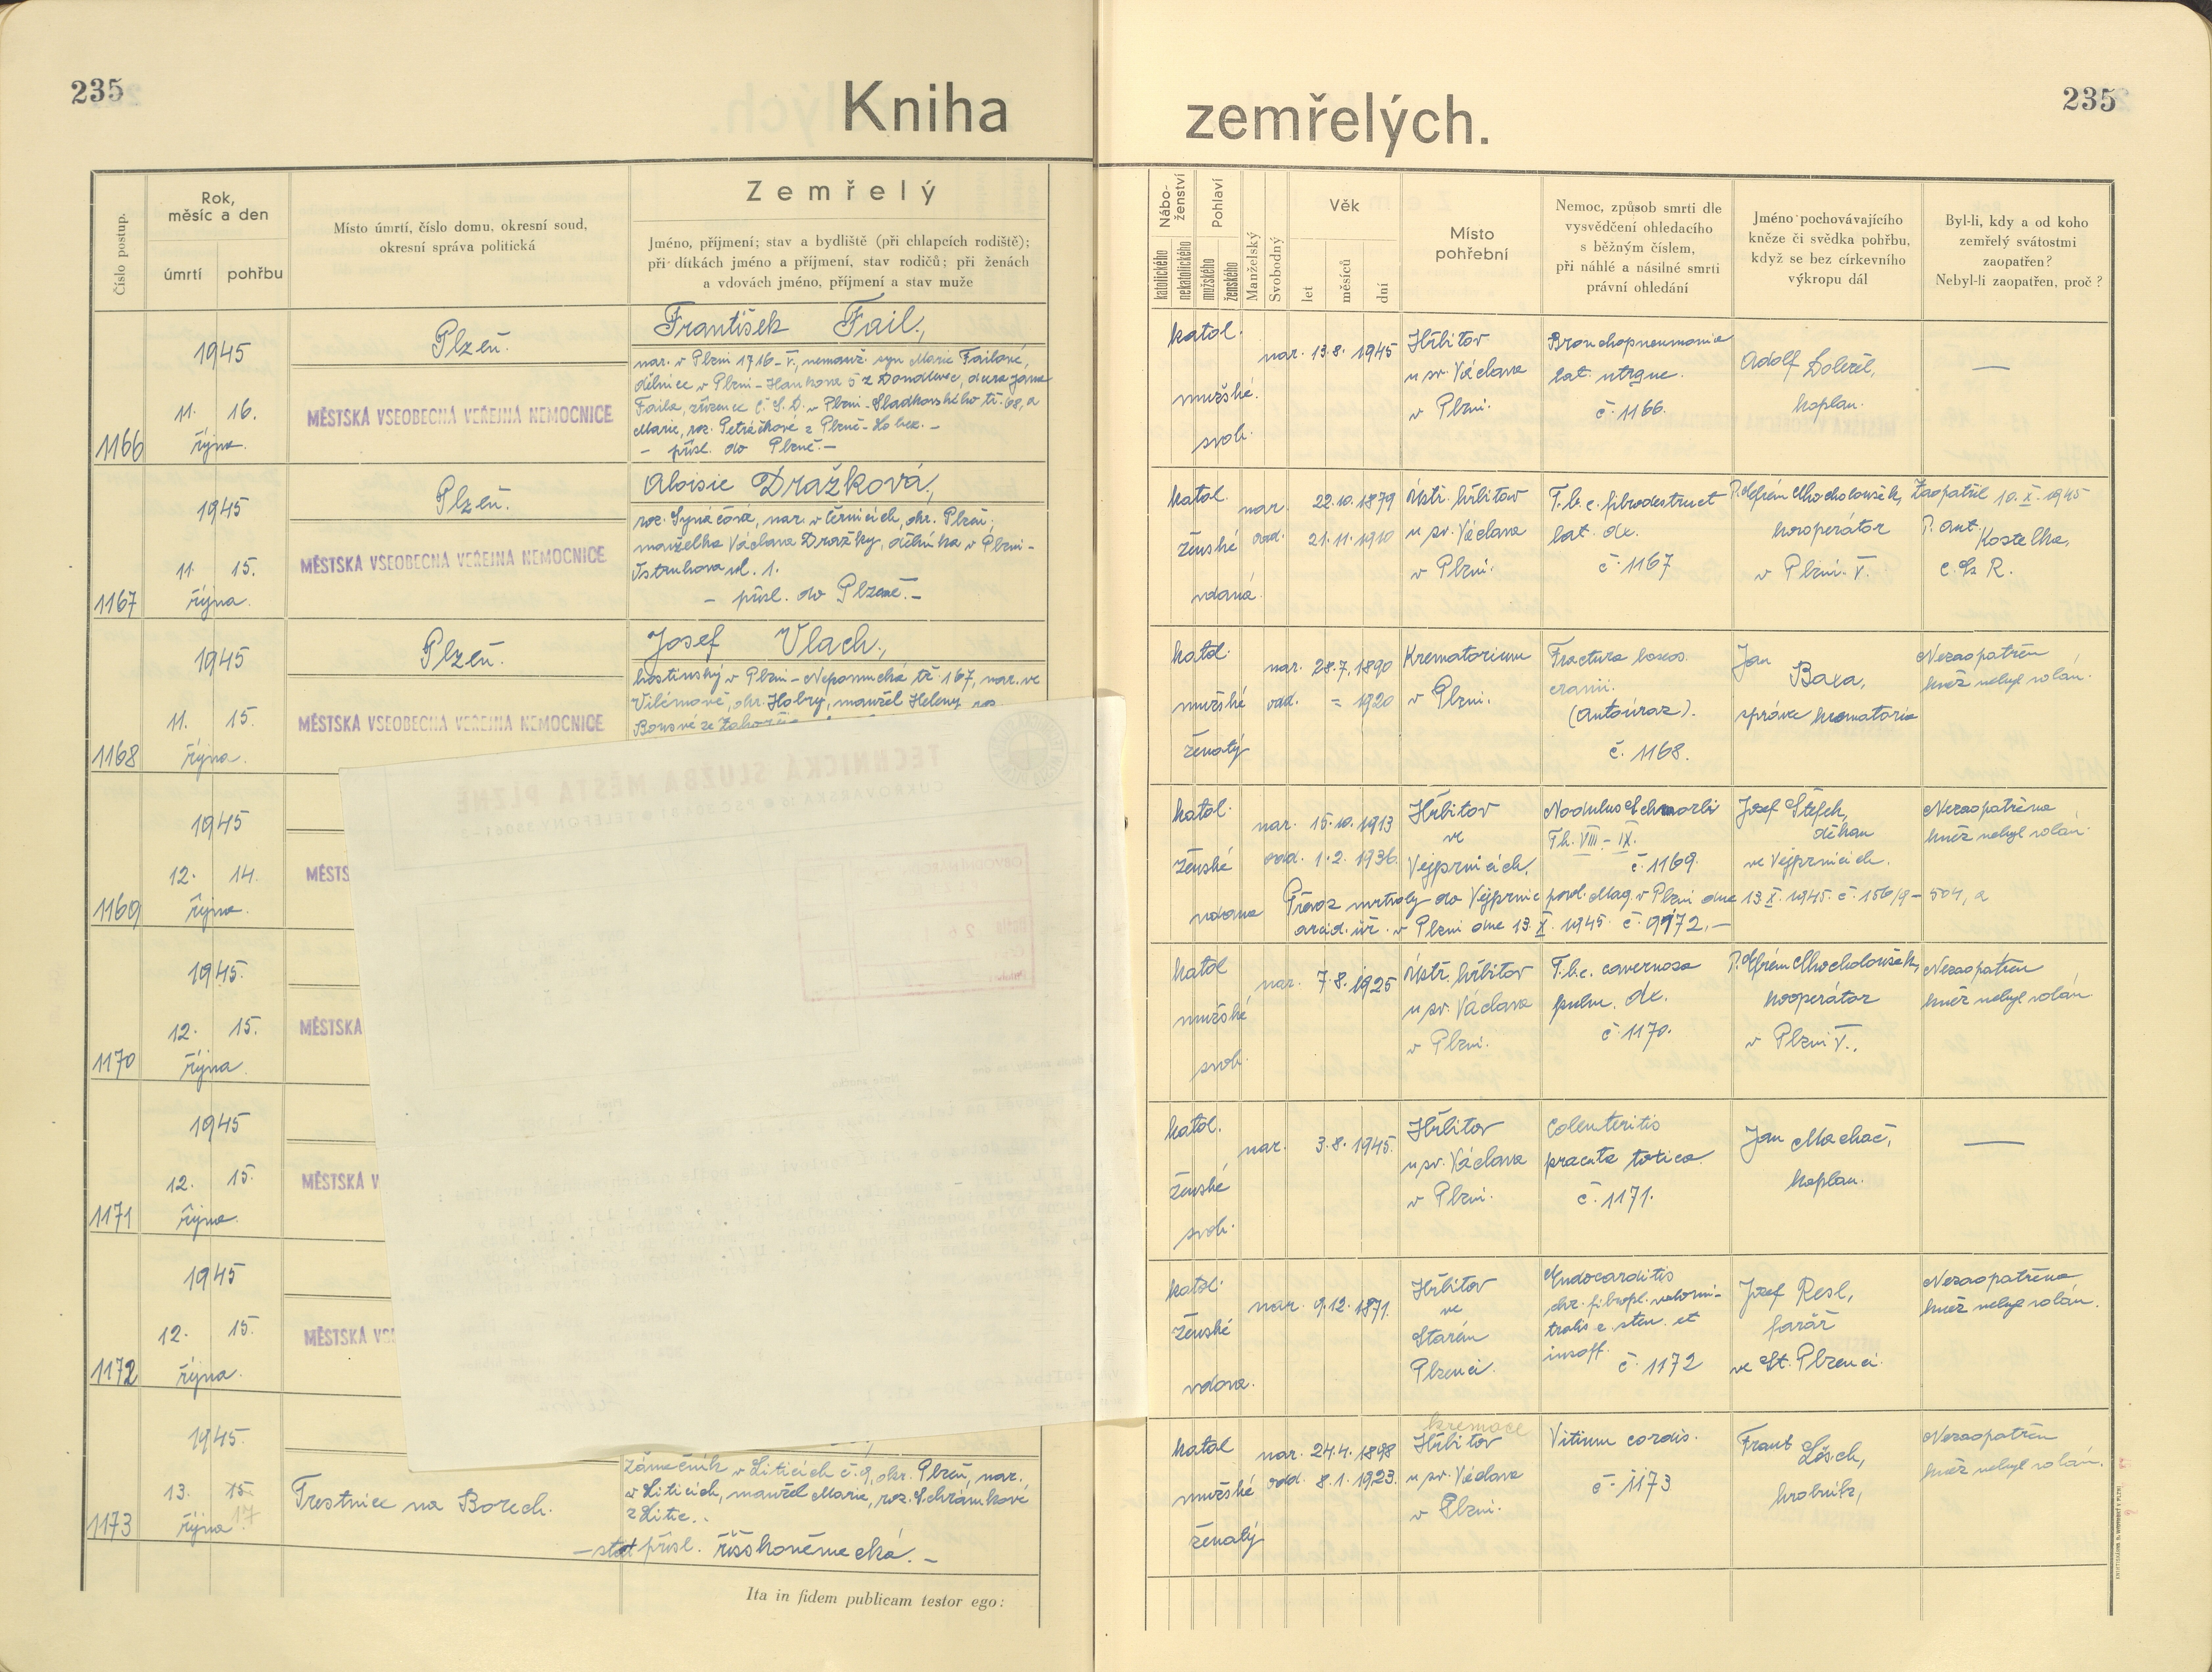 235
Kniha
zemřelých.
235
Číslo postup.
Rok,
měsíc a den
úmrtí
pohřbu
Místo úmrtí, číslo domu, okresní soud,
okresní správa politická
Zemřelý
Jméno, příjmení; stav a bydliště (při chlapcích rodiště);
při dítkách jméno a příjmení, stav rodičů; při ženách
a vdovách jméno, příjmení a stav muže
Nábo-
ženství
katolického
nekatolického
Pohlaví
mužského
ženského
Manželský
Svobodný
Věk
let
měsíců
dní
Místo
pohřební
Nemoc, způsob smrti dle
vysvědčení ohledacího
s běžným číslem,
při náhlé a násilné smrti
právní ohledání
Jméno pochovávajícího
kněze či svědka pohřbu,
když se bez církevního
výkropu dál
Byl-li, kdy a od koho
zemřelý svátostmi
zaopatřen?
Nebyl-li zaopatřen, proč?
1166
1945
11. 16.
října.
Plzeň.
MĚSTSKÁ VŠEOBECNÁ VEŘEJNÁ NEMOCNICE
František Fail,
nar. v Plzni 1716-V, nemanž. syn Marie Failové,
dělnice v Plzni - Hankova 5 z Doudlevec, dcera Jana
Faila, zřízenec Č.S.D. v Plzni - Sladkovského tř. 68, a
Marie, roz. Petráčkové z Plzně-Lobez. -
- přísl. do Plzně. -
katol.
mužské.
svob.
nar. 13.8. 1945
Hřbitov
u sv. Václava
v Plzni.
Bronchopneumonia
lat. utrque.
č. 1166.
Adolf Doležil,
kaplan.
—
1167
1945
11. 15.
října.
Plzeň.
MĚSTSKÁ VŠEOBECNÁ VEŘEJNÁ NEMOCNICE
Aloisie Dražková,
nar. v Černicích, okr. Plzeň,
manželka Václava Dražky, dělníka v Plzni -
ul. 1.
- přísl. do Plzně. -
katol.
ženské
vdaná.
nar. 22.10.1879
odd. 21.11.1910
Ústř. hřbitov
u sv. Václava
v Plzni.
T.b.c. fibrodestruct
lat. dx.
č. 1167
P. Efrém Chocholoušek,
kooperátor
v Plzni V.
Zaopatřil 10.X.1945
P. Ant. Kostelka,
C. Ss R.
1168
1945
11. 15.
října.
Plzeň.
MĚSTSKÁ VŠEOBECNÁ VEŘEJNÁ NEMOCNICE
Josef Vlach,
hostinský v Plzni - Nepomucká tř. 167, nar. ve
Vilémově, okr. Habry, manžel Heleny, roz.
katol.
mužské
ženatý
nar. 28.7.1890
odd. = 1920
Krematorium
v Plzni.
Fractura baseos
cranii.
(Autoúraz).
č. 1168.
Jan Baxa,
správce krematoria
Nezaopatřen
kněz nebyl volán.
1169
1945
12. 14.
října.
MĚSTS
katol.
ženské
vdana
nar. 15.10.1913
odd. 1.2. 1936.
Hřbitov
ve
Vejprnicích.
Nodulus Schmorli
Th. VIII - IX.
č. 1169.
Josef Štefek,
děkan
ve Vejprnicích.
Nezaopatřena
kněz nebyl volán.
Převoz mrtvoly do Vejprnic povol. Mag. v Plzni dne 13.X.1945 č. 156/9 - 504, a
úř. v Plzni dne 13.X.1945 č. 9972. -
1170
1945.
12. 15.
října.
MĚSTSKÁ
katol
mužské
svob.
nar. 7.8.1925
Ústř. hřbitov
u sv. Václava
v Plzni.
T.b.c. cavernosa
pulm. dx.
č. 1170.
P. Efrém Chocholoušek,
kooperátor
v Plzni V.,
Nezaopatřen
kněz nebyl volán.
1171
1945
12. 15.
října.
MĚSTSKÁ V
katol.
ženské
svob.
nar. 3.8.1945.
Hřbitov
u sv. Václava
v Plzni.
Colenteritis
peracuta toxica.
č. 1171.
Jan Machač,
kaplan.
—
1172
1945
12. 15.
října.
MĚSTSKÁ VŠ
katol.
ženské
vdova.
nar. 9.12.1871.
Hřbitov
ve
Starém
Plzenci.
Endocarditis
chr. fibropl. valv. mi-
tralis c. sten. et
insuff.
č. 1172
Josef Resl,
farář
ve St. Plzenci.
Nezaopatřena
kněz nebyl volán.
1173
1945.
13. 15.
října 17
Trestnice na Borech.
zámečník v Liticích č. 9, okr. Plzeň, nar.
v Liticích, manžel Marie, roz. Schrámkové
z Litic. -
- stát. přísl. říšskoněmecká. -
katol
mužské
ženatý
nar. 24.4.1898
odd. 8.1.1923.
kremace
Hřbitov
u sv. Václava
v Plzni.
Vitium cordis.
č. 1173
Frant. Lösch,
hrobník,
Nezaopatřen
kněz nebyl volán.
Ita in fidem publicam testor ego:
TECHNICKÁ SLUŽBA MĚSTA PLZNĚ